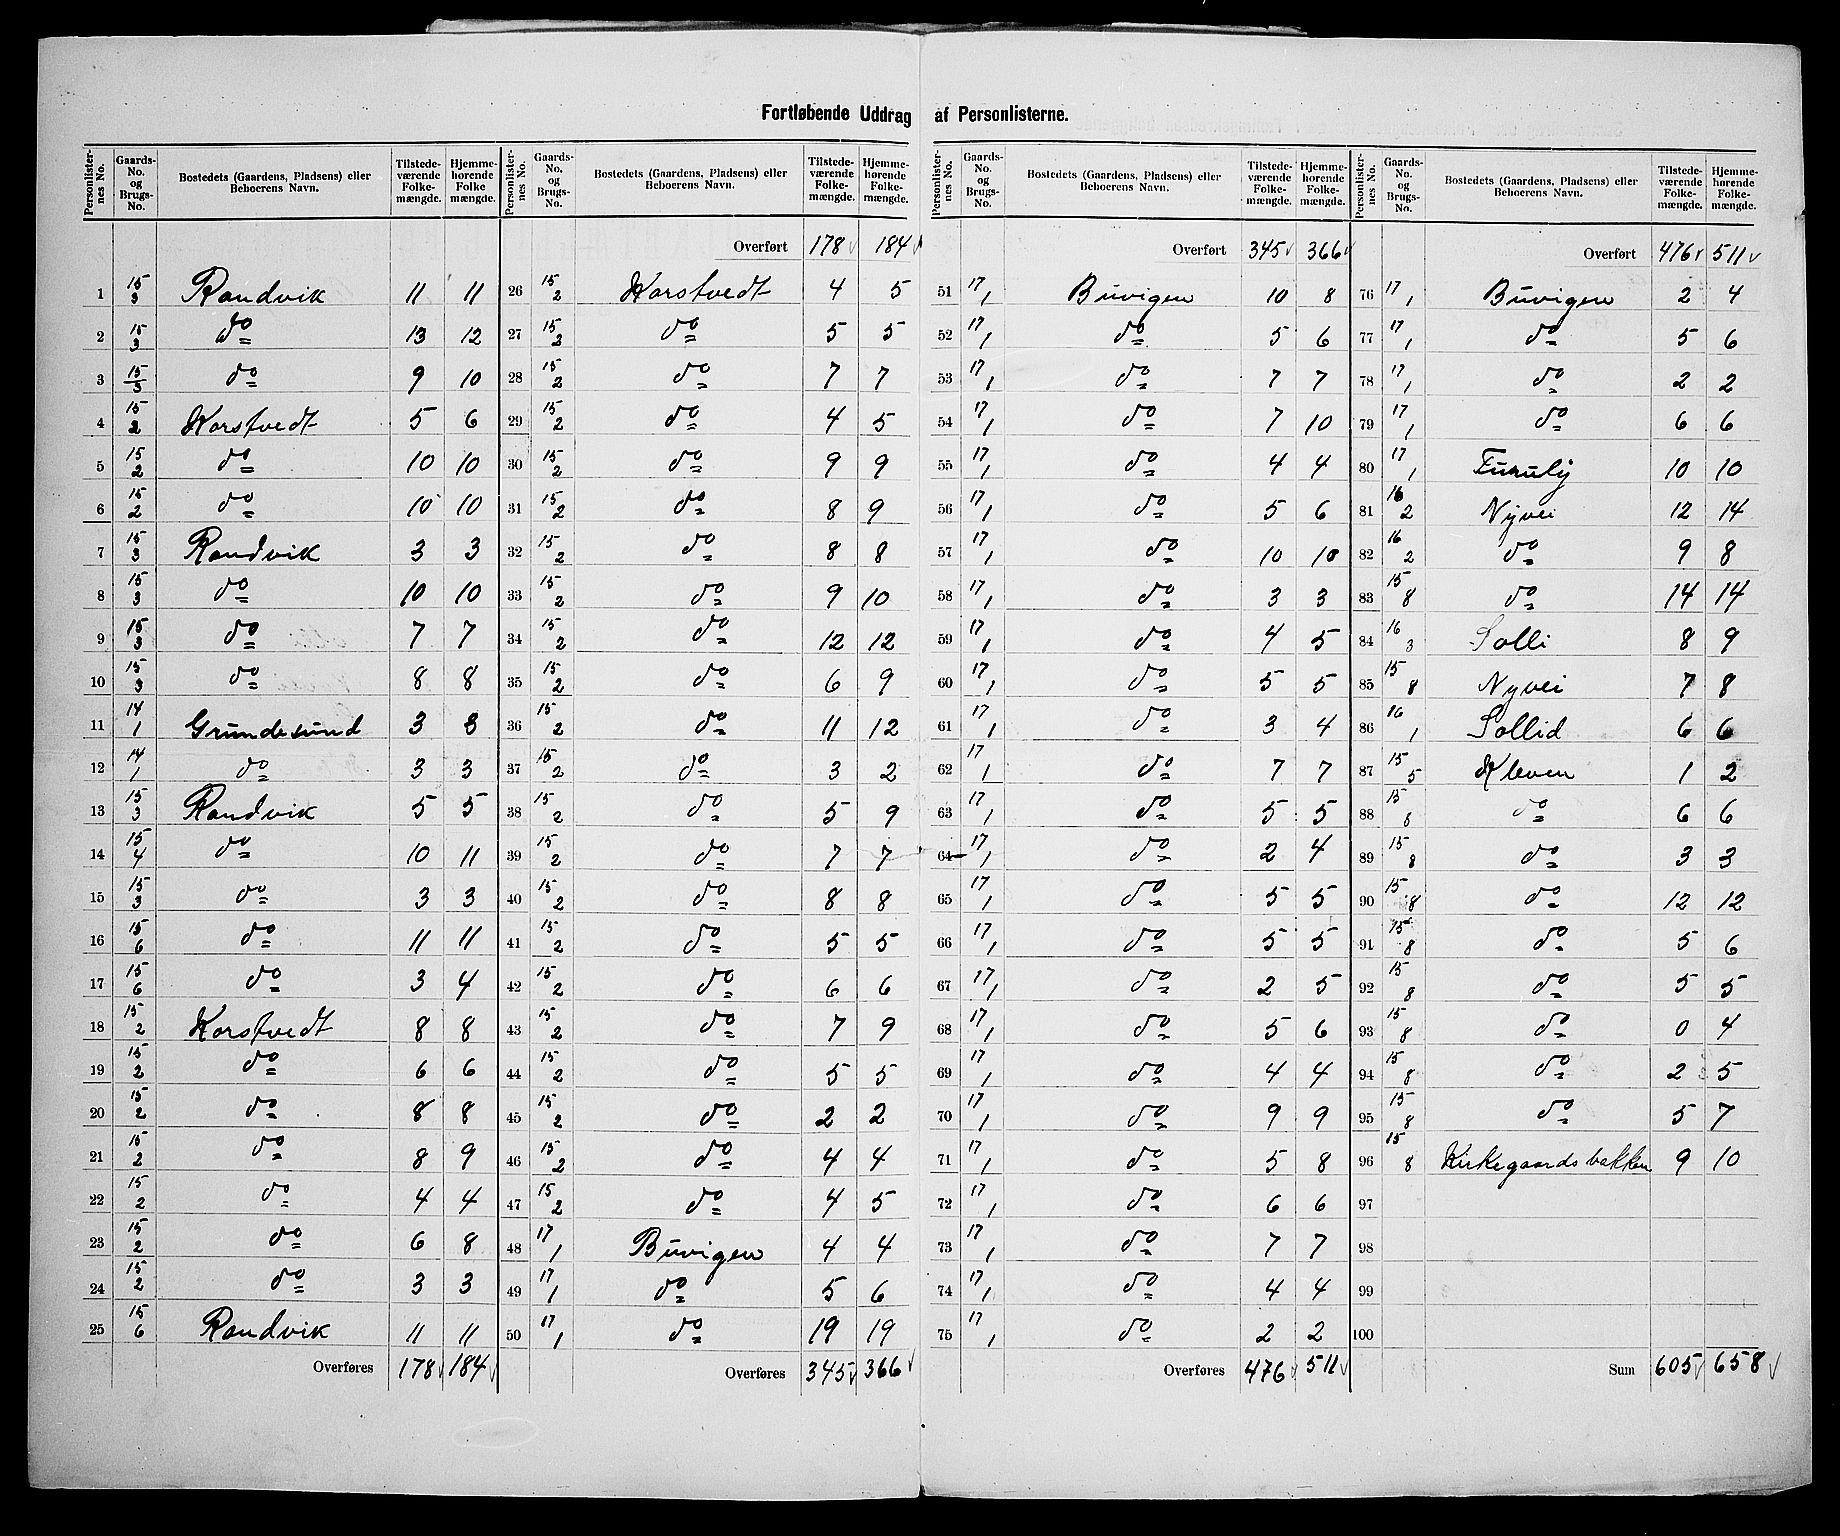 Fortløbende Uddrag af Personlisterne.
Personlister-nes No. | Gaards-No. og Brugs-No. | Bostedets (Gaardens, Pladsens) eller Beboerens Navn. | Tilstede-værende Folke-mængde. | Hjemme-hørende Folke mængde.
1 15/3 Randvik 11 11
2 15/3 do 13 12
3 15/3 do 9 10
4 15/2 Korstvedt 5 6
5 15/2 do 10 10
6 15/2 do 10 10
7 15/3 Randvik 3 3
8 15/3 do 10 10
9 15/3 do 7 7
10 15/3 do 8 8
11 14/1 Grundesund 3 3
12 14/1 do 3 3
13 15/3 Randvik 5 5
14 15/4 do 10 11
15 15/3 do 3 3
16 15/6 do 11 11
17 15/6 do 3 4
18 15/2 Korstvedt 8 8
19 15/2 do 6 6
20 15/2 do 8 8
21 15/2 do 8 9
22 15/2 do 4 4
23 15/2 do 6 8
24 15/2 do 3 3
25 15/6 Randvik 11 11
Overføres 178 184
Personlister-nes No. | Gaards-No. og Brugs-No. | Bostedets (Gaardens, Pladsens) eller Beboerens Navn. | Tilstede-værende Folke-mængde. | Hjemme-hørende Folke-mængde.
Overført 178 184
26 15/2 Korstvedt 4 5
27 15/2 do 5 5
28 15/2 do 7 7
29 15/2 do 4 5
30 15/2 do 9 9
31 15/2 do 8 9
32 15/2 do 8 8
33 15/2 do 9 10
34 15/2 do 12 12
35 15/2 do 6 9
36 15/2 do 11 12
37 15/2 do 3 2
38 15/2 do 5 9
39 15/2 do 7 7
40 15/2 do 8 8
41 15/2 do 5 5
42 15/2 do 6 6
43 15/2 do 7 9
44 15/2 do 5 5
45 15/2 do 2 2
46 15/2 do 4 4
47 15/2 do 4 5
48 17/1 Buvigen 4 4
49 17/1 do 5 6
50 17/1 do 19 19
Overføres 345 366
Personlister-nes No. | Gaards-No. og Brugs-No. | Bostedets (Gaardens, Pladsens) eller Beboerens Navn. | Tilstede-værende Folke-mængde. | Hjemme-hørende Folke-mængde.
Overført 345 366
51 17/1 Buvigen 10 8
52 17/1 do 5 6
53 17/1 do 7 7
54 17/1 do 7 10
55 17/1 do 4 4
56 17/1 do 5 6
57 17/1 do 10 10
58 17/1 do 3 3
59 17/1 do 4 5
60 17/1 do 5 5
61 17/1 do 3 4
62 17/1 do 7 7
63 17/1 do 5 5
64 17/1 do 2 4
65 17/1 do 5 5
66 17/1 do 5 5
67 17/1 do 2 5
68 17/1 do 5 6
69 17/1 do 4 4
70 17/1 do 9 9
71 17/1 do 5 8
72 17/1 do 6 6
73 17/1 do 7 7
74 17/1 do 4 4
75 17/1 do 2 2
Overføres 476 511
Personlister-nes No. | Gaards-No. og Brugs-No. | Bostedets (Gaardens, Pladsens) eller Beboerens Navn. | Tilstede-værende Folke-mængde. | Hjemme-hørende Folke-mængde.
Overført 476 511
76 17/1 Buvigen 2 4
77 17/1 do 5 6
78 17/1 do 2 2
79 17/1 do 6 6
80 17/1 Furuly 10 10
81 16/2 Nyvei 12 14
82 16/2 do 9 8
83 15/8 do 14 14
84 16/3 Solli 8 9
85 15/8 Nyvei 7 8
86 16/1 Sollid 6 6
87 15/5 Kleven 1 2
88 15/8 do 6 6
89 15/8 do 3 3
90 15/8 do 12 12
91 15/8 do 5 6
92 15/8 do 5 5
93 15/8 do 0 4
94 15/8 do 2 5
95 15/8 do 5 7
96 15/8 Kirkegaardsbakken 9 10
97
98
99
100
Sum 605 658